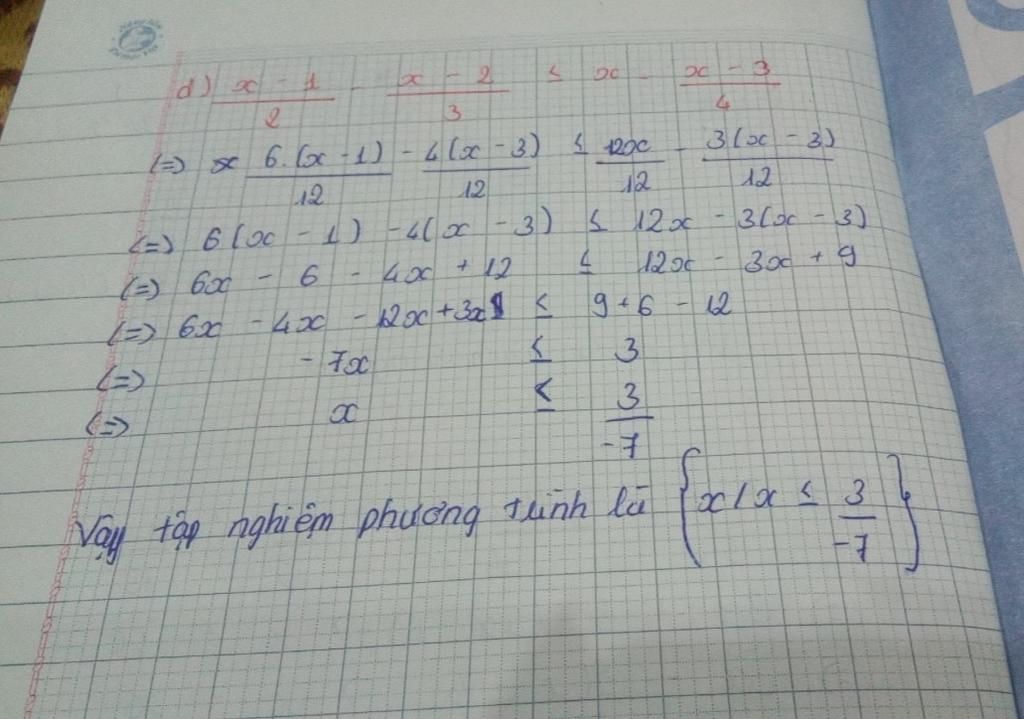 d) x - 1 / 2 - x - 2 / 3 ≤ x - x - 3 / 4
(=) 6.(x - 1) / 12 - 4(x - 3) / 12 ≤ 12x / 12 - 3(x - 3) / 12
(=) 6(x - 1) - 4(x - 3) ≤ 12x - 3(x - 3)
(=) 6x - 6 - 4x + 12 ≤ 12x - 3x + 9
(=) 6x - 4x - 12x + 3x ≤ 9 + 6 - 12
(=) - 7x ≤ 3
(=) x ≤ 3 / -7
Vậy tập nghiệm phương trình là {x / x ≤ 3 / -7}